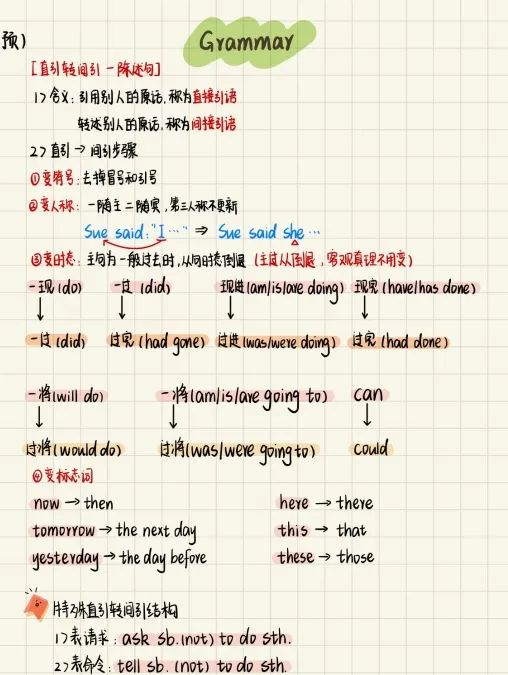 预)
Grammar
[直引转间引-陈述句]
1> 含义:引用别人的原话,称为直接引语
转述别人的原话,称为间接引语
2> 直引→间引步骤
①变符号:去掉冒号和引号
②变人称:一随主二随宾,第三人称不更新
Sue said:"I…" ⇒ Sue said she…
③变时态:主句为一般过去时,从句时态倒退(主过从倒退,客观真理不用变)
一现(do) 一过(did) 现进(am/is/are doing) 现完(have/has done)
↓ ↓ ↓ ↓
一过(did) 过完(had gone) 过进(was/were doing) 过完(had done)
一将(will do) 一将(am/is/are going to) can
↓ ↓ ↓
过将(would do) 过将(was/were going to) could
④变标志词
now → then here → there
tomorrow → the next day this → that
yesterday → the day before these → those
特殊直引转间引结构
1>表请求:ask sb.(not) to do sth.
2>表命令:tell sb. (not) to do sth.